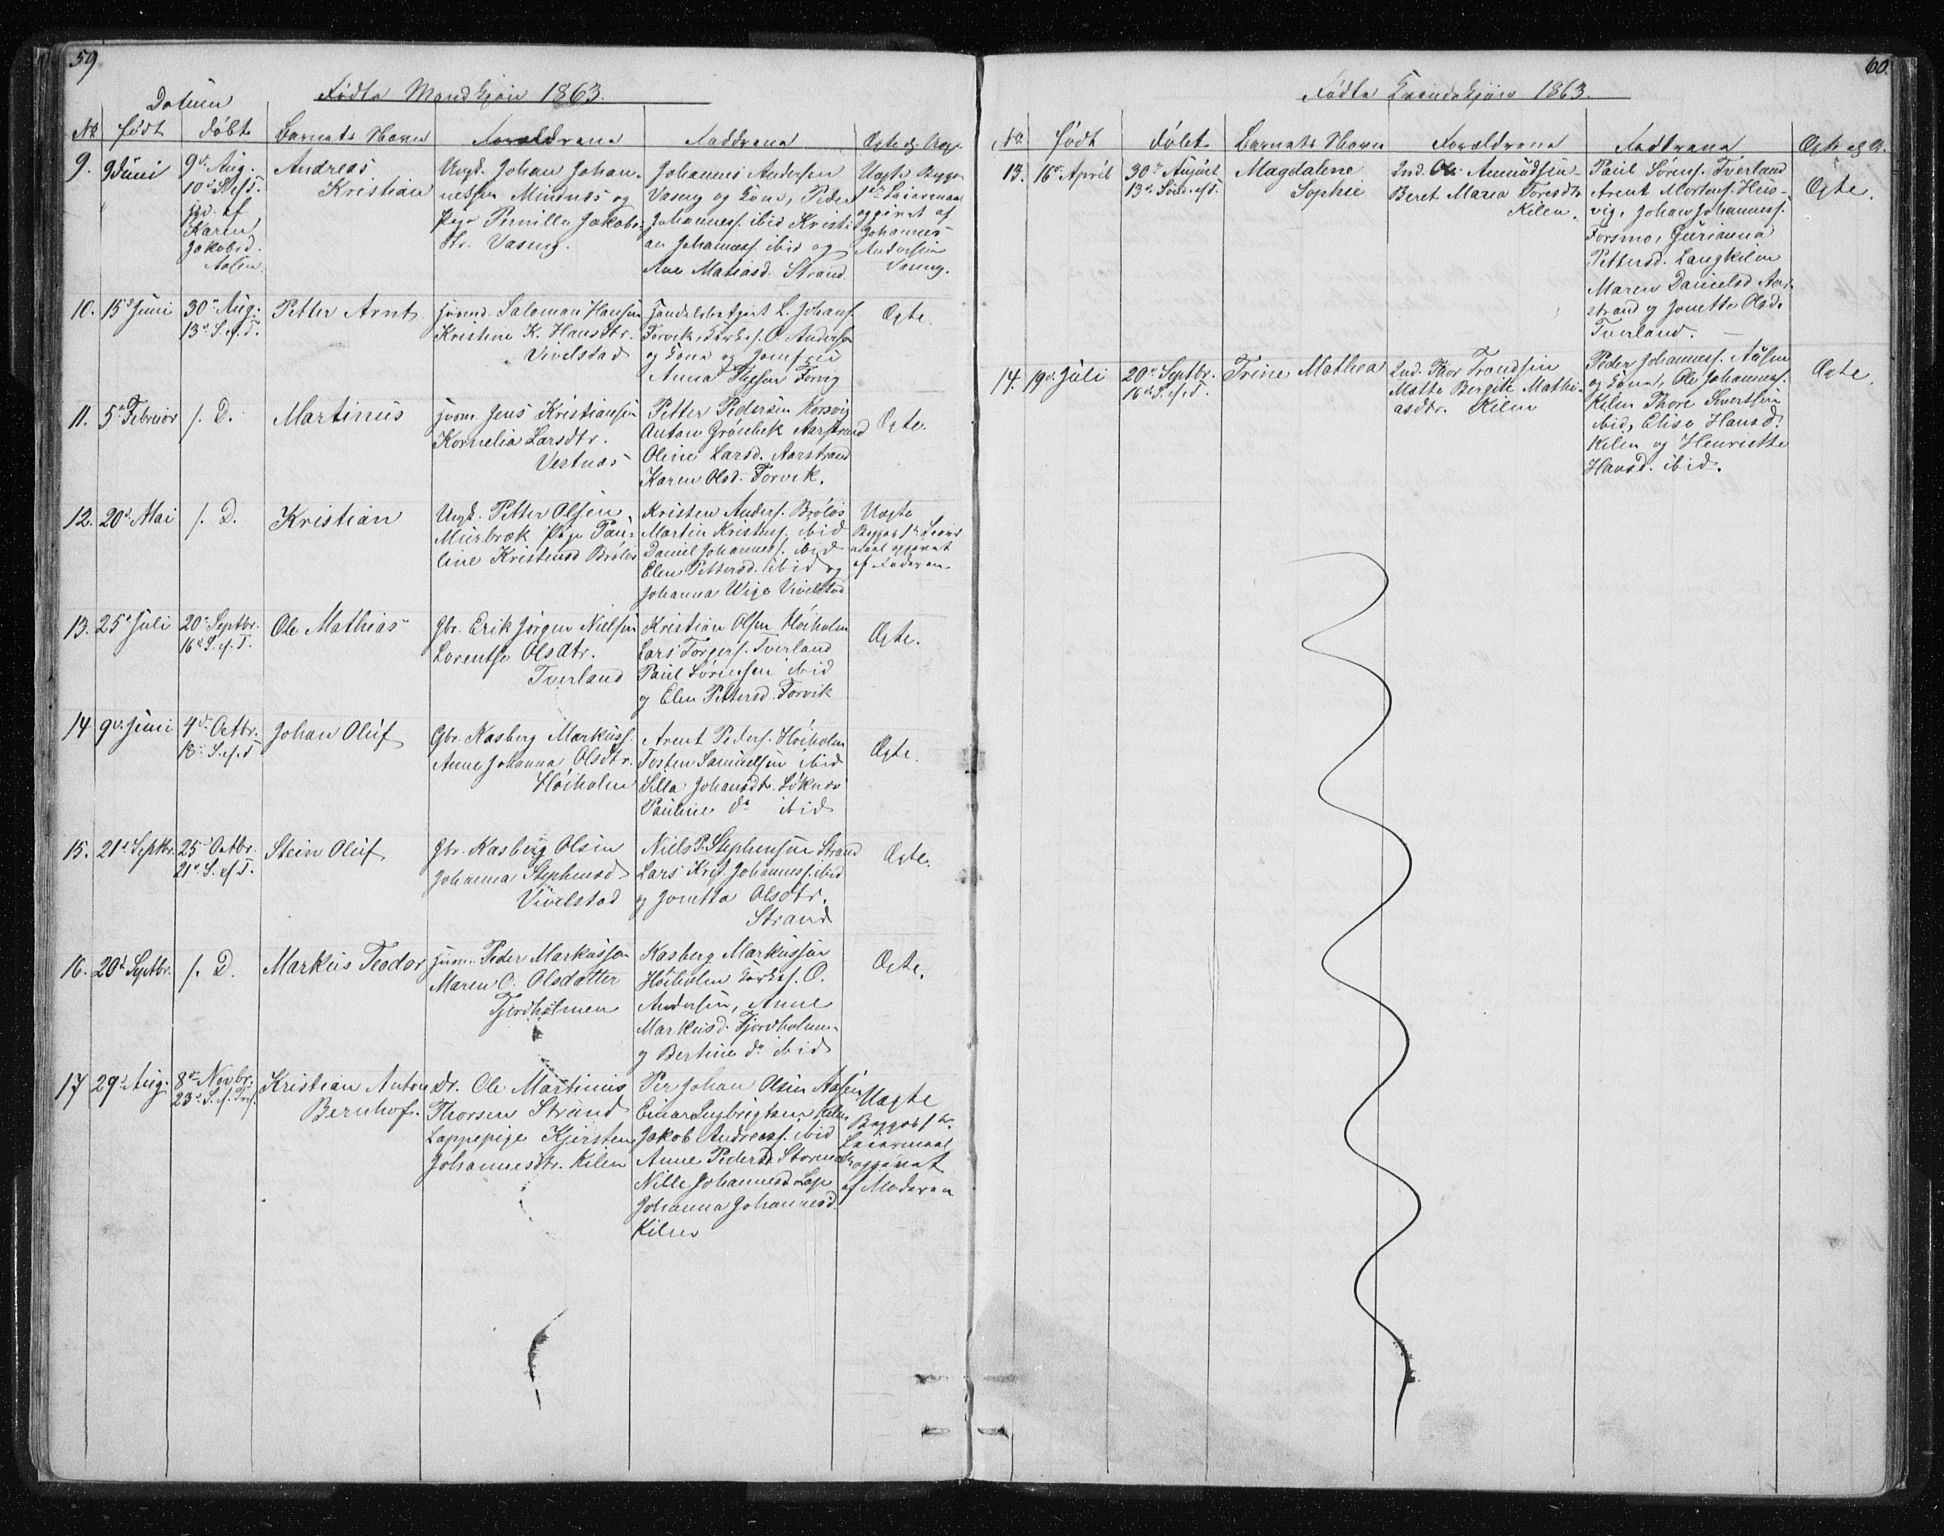 59
Fødte Mandkjøn 1863.
Datum
№ født døbt Barnets Navn Forældrene Faddrene Ægte og Uægte
9. 9 Juni 9de Aug. 10 S.e.T. jvd. af Karen Jakobsd. Aasen
Andreas
Kristian
Ungk. Johan Johan-
nessen Mindnæs og
Pige Pernille Jakobs-
dtr. Vaseng.
Johannes Andersen
Vaseng og Kone, Peder
Johanness. ibid Kristi-
an Johanness. ibid og
Ane Matiasd. Strand.
Uægte Begges
1ste Leiermaal
opgivet af
Johannes
Andersen
Vaseng.
10. 15de Juni 30te Aug. 13de S.e.T. Petter Arnt
Husmd. Salomon Hansen
Kristine K. Hansdtr.
Vivelstad
Handelsbetjent L. Johans.
Forvik, Kirkes. O. Andersen
og Kone og Jomfru
Anna Forvig
Ægte.
11. 5te Februar /. D. Martinus
Husm. Jens Kristiansen
Kornelia Larsdtr.
Vestnæs
Petter Pedersen Korsvig
Anton Grönbek Aarstrand
Oline Larsd. Aarstrand
Karen Olsd. Forvik.
Ægte.
12. 20de Mai /. D. Kristian
Ungk. Petter Olsen
Murbræk Pige Pau-
line Kristensd Bröløs
Kristen Anders. Bröløs
Martin Kristens. ibid
Daniel Johanness. ibid
Elen Pettersd. ibid og
Johanna Wige Vivelstad
Uægte
Begges 1ste Leier-
maal opgivet
af Faderen.
13. 25de Juli 20de Septbr. 16de S.e.T. Ole Mathias
Gbr. Erik Jörgen Nielsen
Lorentse Olsdtr.
Tverland
Kristian Olsen Höiholm
Lars Torgers. Tverland
Paul Sörensen ibid
og Elen Pettersd. Forvik
Ægte.
14 9de Juni 4de Octbr. 18de S.e.T Johan Oluf
Gbr. Kasberg Markuss.
Anne Johanna Olsdtr.
Höiholm
Arent Peders. Höiholm
Tosten Samuelsen ibid
Silla Johansdtr. Löknæs
Pauline do ibid
Ægte.
15. 21de Septbr. 25de Octbr. 21de S.e.T. Stein Oluf
Gbr. Kasberg Olsen
Johanna Stephensd
Vivelstad
Niels P. Stephensen Strand
Lars Krist. Johanness. ibid
og Jonetta Olsdtr.
Strand
Ægte.
16. 20de Septbr. /. D. Markus Teodor
Husm. Peder Markussen
Maren O. Olsdatter
Fjordholmen
Kasberg Markussen
Höiholm Kirkes. O.
Andersen, Anne
Markusd. Fjordholmen
og Bertine do ibid
Ægte.
17 29de Aug. 8de Novbr. 23de S.e.Tref. Kristian Anton
Bernhof.
Dr. Ole Martinus
Thorsen Strand
Lappepige Kjersten
Johannesdtr. Kilen
Per Johan Olsen Aasen
Einar Ingbrigtsen Kilen
Jakob Andreass. ibid
Anne Pedersd. Stormo
Nille Johannesd Lap
Johanna Johannesd.
Kilen
Uægte
Begges 1ste
Leiermaal
opgivet
af Moderen
60.
Fødte Kvindekjøn 1863.
№ født døbt Barnets Navn Forældrene Faddrene Ægte og U.
13. 16de April 30te August 13de Sönd. e.T. Magdalene
Sophie
Ind. Ole Amundsen
Beret Maria Toresdtr
Kilen.
Paul Sörens. Tverland
Arent Mortens. Hus-
vig, Johan Johanness.
Forsmo, Gurianna
Pettersd. Langkilen
Maren Danielsd Aar-
strand og Jonette Olsd.
Tverland.
Ægte.
14. 19de Juli 20de Septbr. 16de S.e.T. Trine Mathea
Ind. Thor Trondsen
Matte Bergitte Mathi-
asdtr. Kilen
Peder Johanness. Aasen
og Kone, Ole Johanness.
Kilen Thore Sivertsen
ibid, Elise Hansd.
Kilen og Henriette
Hansd. ibid.
Ægte.